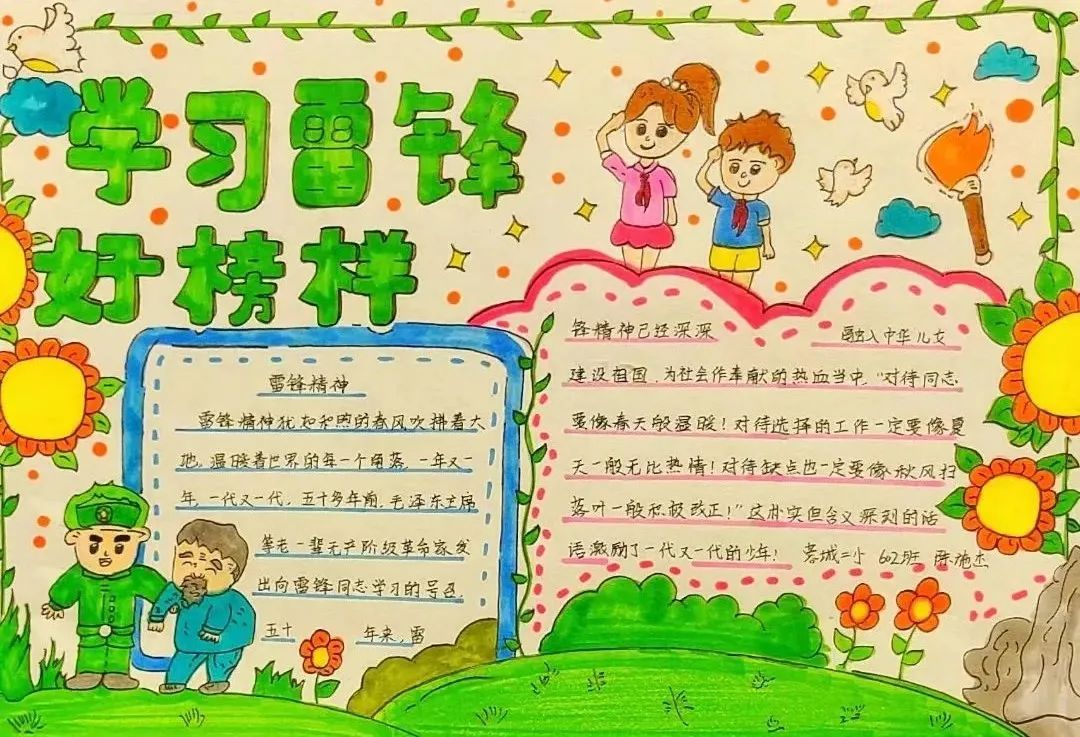 学习雷锋
好榜样
雷锋精神
雷锋精神犹如和煦的春风吹拂着大
地，温暖着世界的每一个角落，一年又一
年，一代又一代，五十多年前，毛泽东主席
等老一辈无产阶级革命家发
出向雷锋同志学习的号召
五十 年来，雷
锋精神已经深深 融入中华儿女
建设祖国，为社会作奉献的热血当中，“对待同志
要像春天般温暖！对待选择的工作一定要像夏
天一般无比热情！对待缺点也一定要像秋风扫
落叶一般积极改正！”这朴实但含义深刻的话
语激励了一代又一代的少年！ 蓉城二小 602班 陈